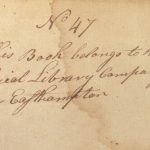 No 47
his Book belongs to
ical Library Compa
Easthampton